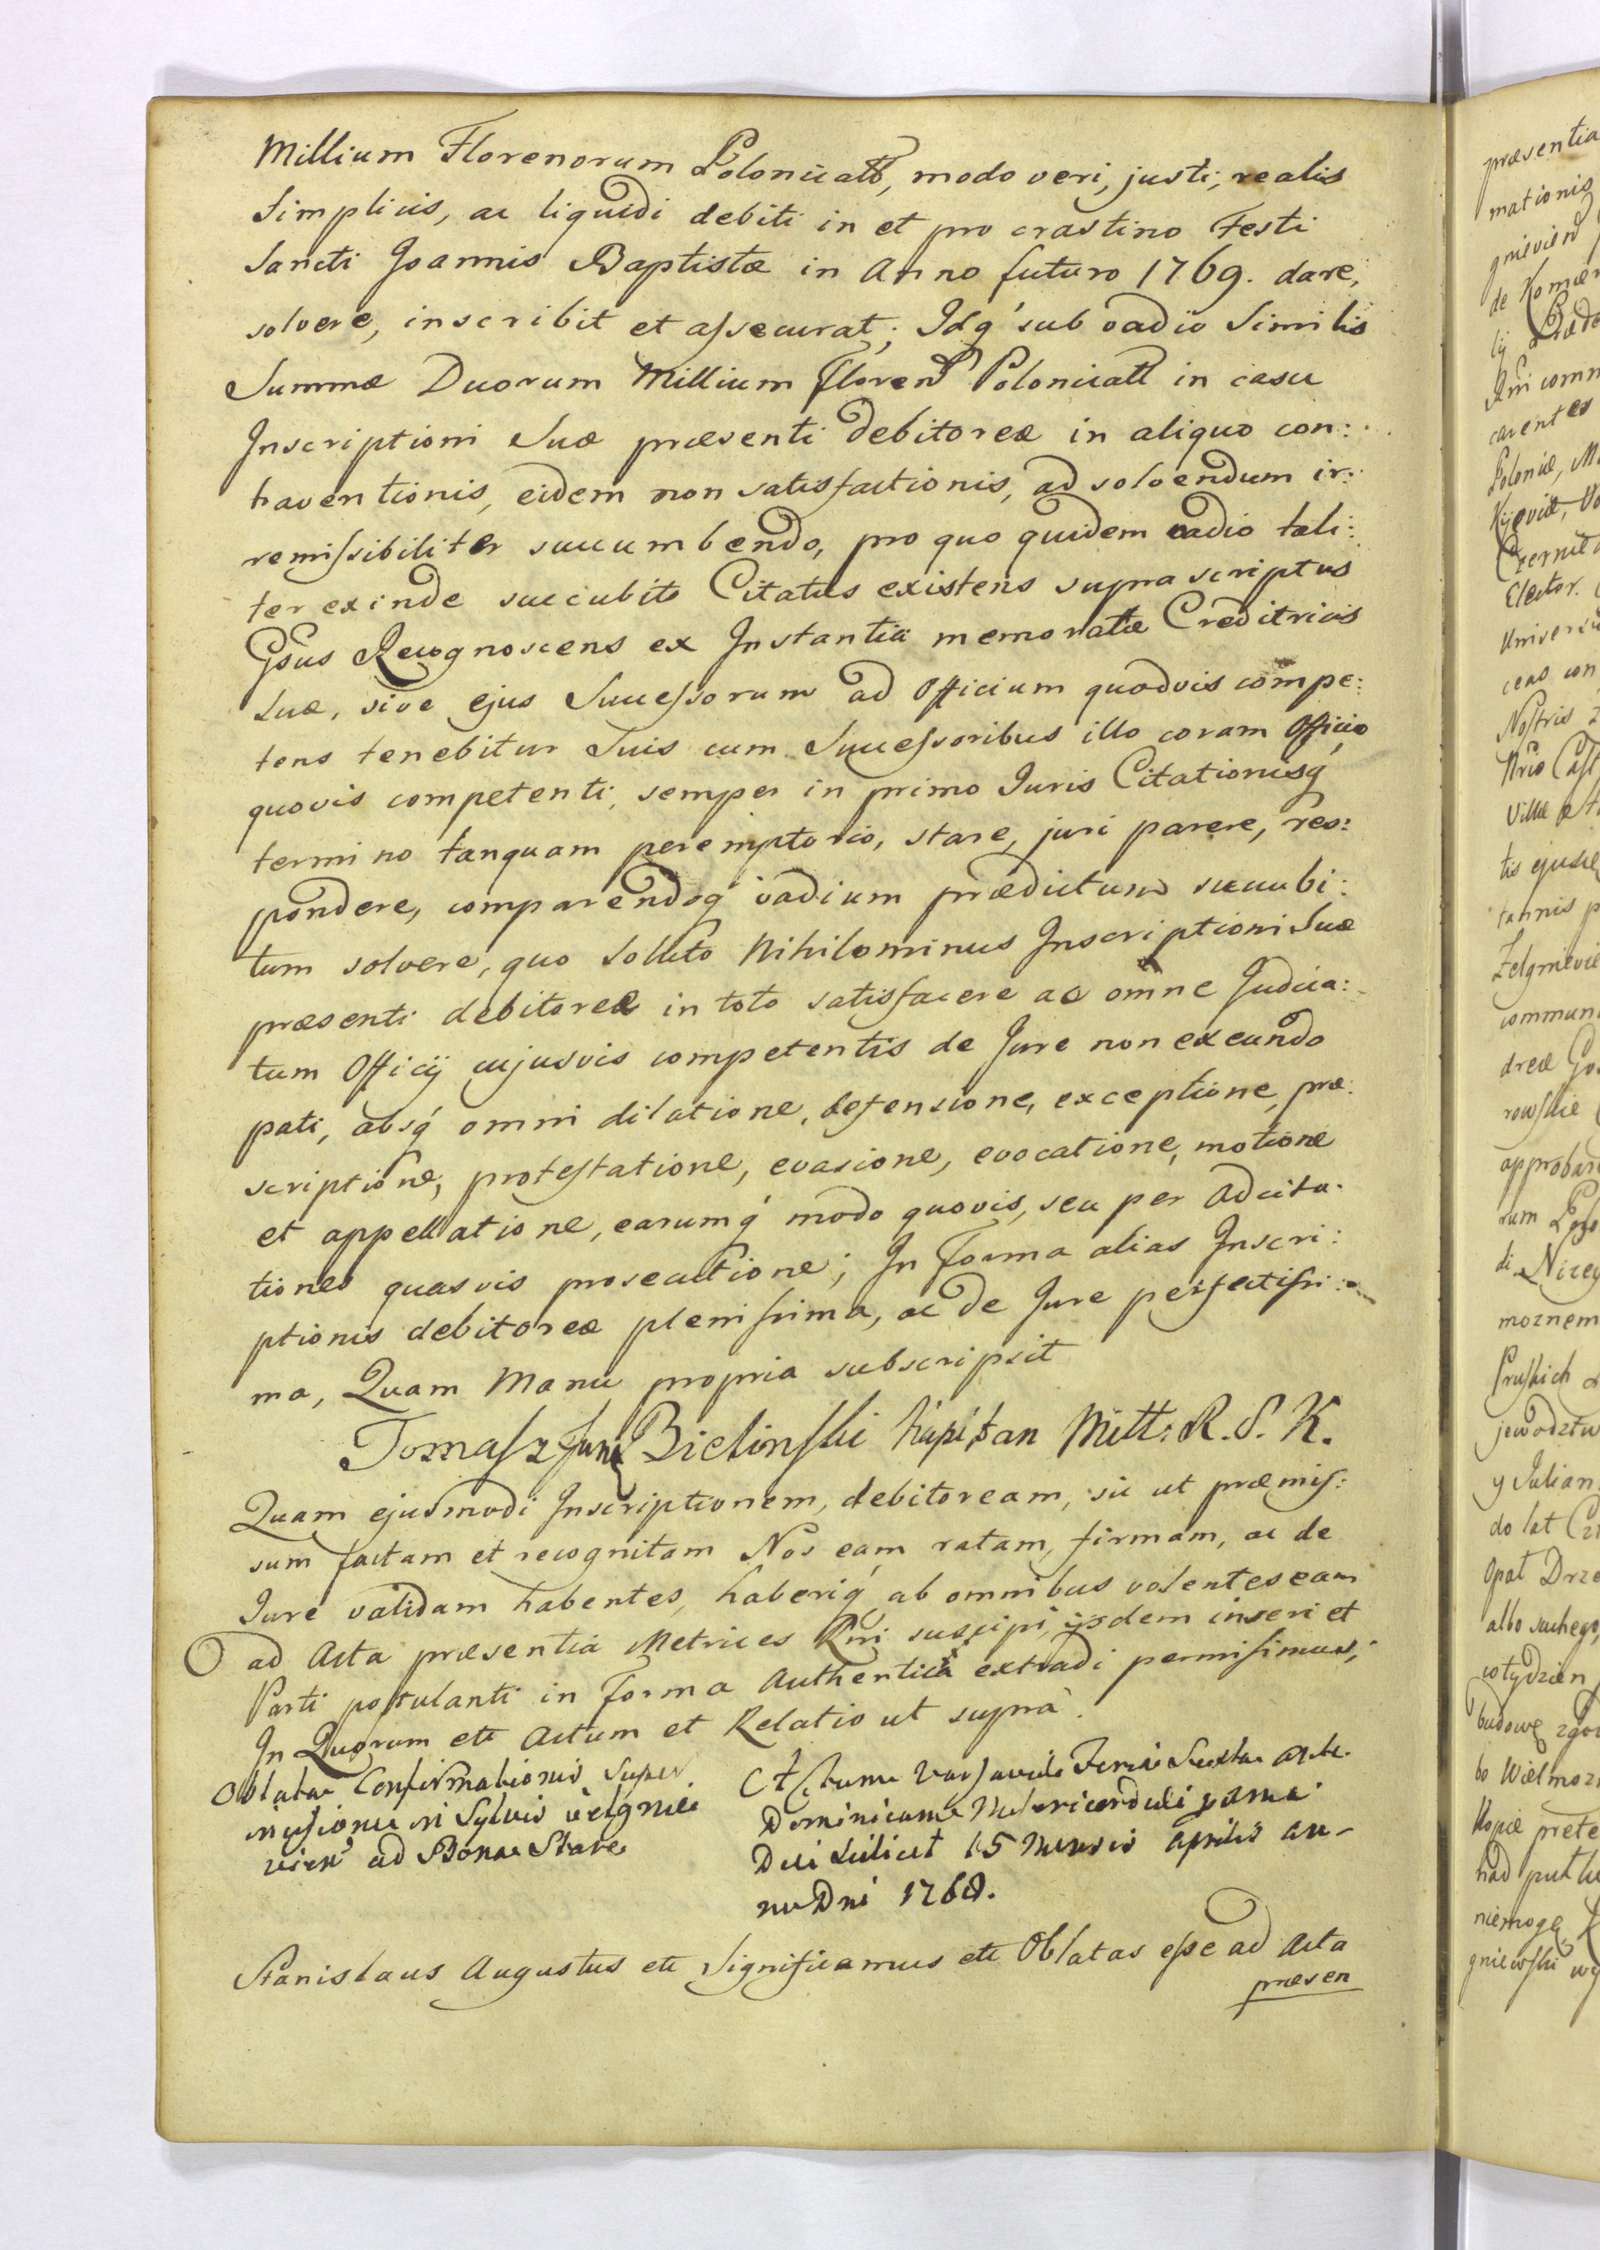 Millium Florenorum Polonicall, modo veri, justi, realis
Simplicis, ac liquidi debiti in et pro crastino Festi
Sancti Joannis Baptistæ in Anno futuro 1769. dare,
solvere, inscribit et assecurat; Idq́ sub vadio Similis
Summæ Duorum Millium Floren Polonicall in casu
Inscriptioni Suæ præsenti debitoreæ in aliquo con:
traventionis, eidem non satisfactionis, ad solvendum ir:
remissibiliter succumbendo, pro quo quidem vadio tali:
ter exinde succubito Citatus existens supra scriptus
Gsus Recognoscens ex Instantia memoratæ Creditricis
Suæ, sive ejus Successorum ad Officium quodvis compe:
tens tenebitur Suis cum Successoribus illo coram Officio
quovis competenti, semper in primo Juris Citationisq́
termino tanquam peremptorio, stare, juri parere, res:
pondere, comparendoq́ vadium prædictum succubi:
tum solvere, quo Soluto Nihilominus Inscriptioni Suæ
præsenti debitoreæ in toto satisfacere ac omne Judica:
tum Officij cujusvis competentis de Jure non exeundo
pati, absq́ omni dilatione, defensione, exceptione, præ:
scriptione, protestatione, evasione, evocatione, motione
et appellatione, earumq́ modo quovis, seu per Adcita:
tiones quasvis prosecutione; In Forma alias Inscri:
ptionis debitoreæ plenissima, ac de Jure perfectissi:
ma, Quam Manu propria subscripsit
Tomasz Bielinski Kapitan Mitt: R. S. K.
Quam ejusmodi Inscriptionem, debitoream, sic ut præmis:
sum factam et recognitam Nos eam ratam, firmam, ac de
Jure validam habentes, haberiq́ ab omnibus volentes eam
ad Acta præsentia Metrices Rni suscipi, ijsdem inseri et
Parti postulanti in Forma Authentica extradi permisimus;
In Quorum etc Actum et Relatio ut suprà.
Oblata Confirmationis super
incisione in Sylvis
ad Bona Stare
Actum Varsaviæ Feria Sexta ante
Dominicam Misericordiæ
Dei scilicet 15 Mensis Aprilis An-
no Dni 1768.
Stanislaus Augustus etc Significamus etc Oblatas esse ad Acta
præsen
præsentia
mationis
gnievien
de
lij
Rni comm
carentes
Poloniæ, M
Kijoviæ,
Elector.
Univers
ceas con
Nostris
Villæ
tis ejusd
tannis p
Zelgnievie
commun
dreæ
rowskie
approbare
rum
di
moznem
Pruskich
jewodztw
y Julian
do lat
Opat Drze
albo suchego,
budowę
bo Wielmoz
Kopie
niemogę